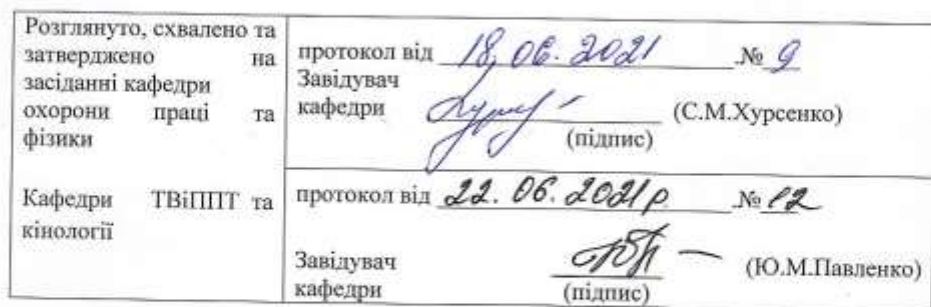 Розглянуто, схвалено та
затверджено на
засіданні кафедри
охорони праці та
фізики
протокол від 18.06.2021 № 9
Завідувач
кафедри (С.М.Хурсенко)
(підпис)
Кафедри ТВіППТ та
кінології
протокол від 22.06.2021р № 12
Завідувач
кафедри (Ю.М.Павленко)
(підпис)